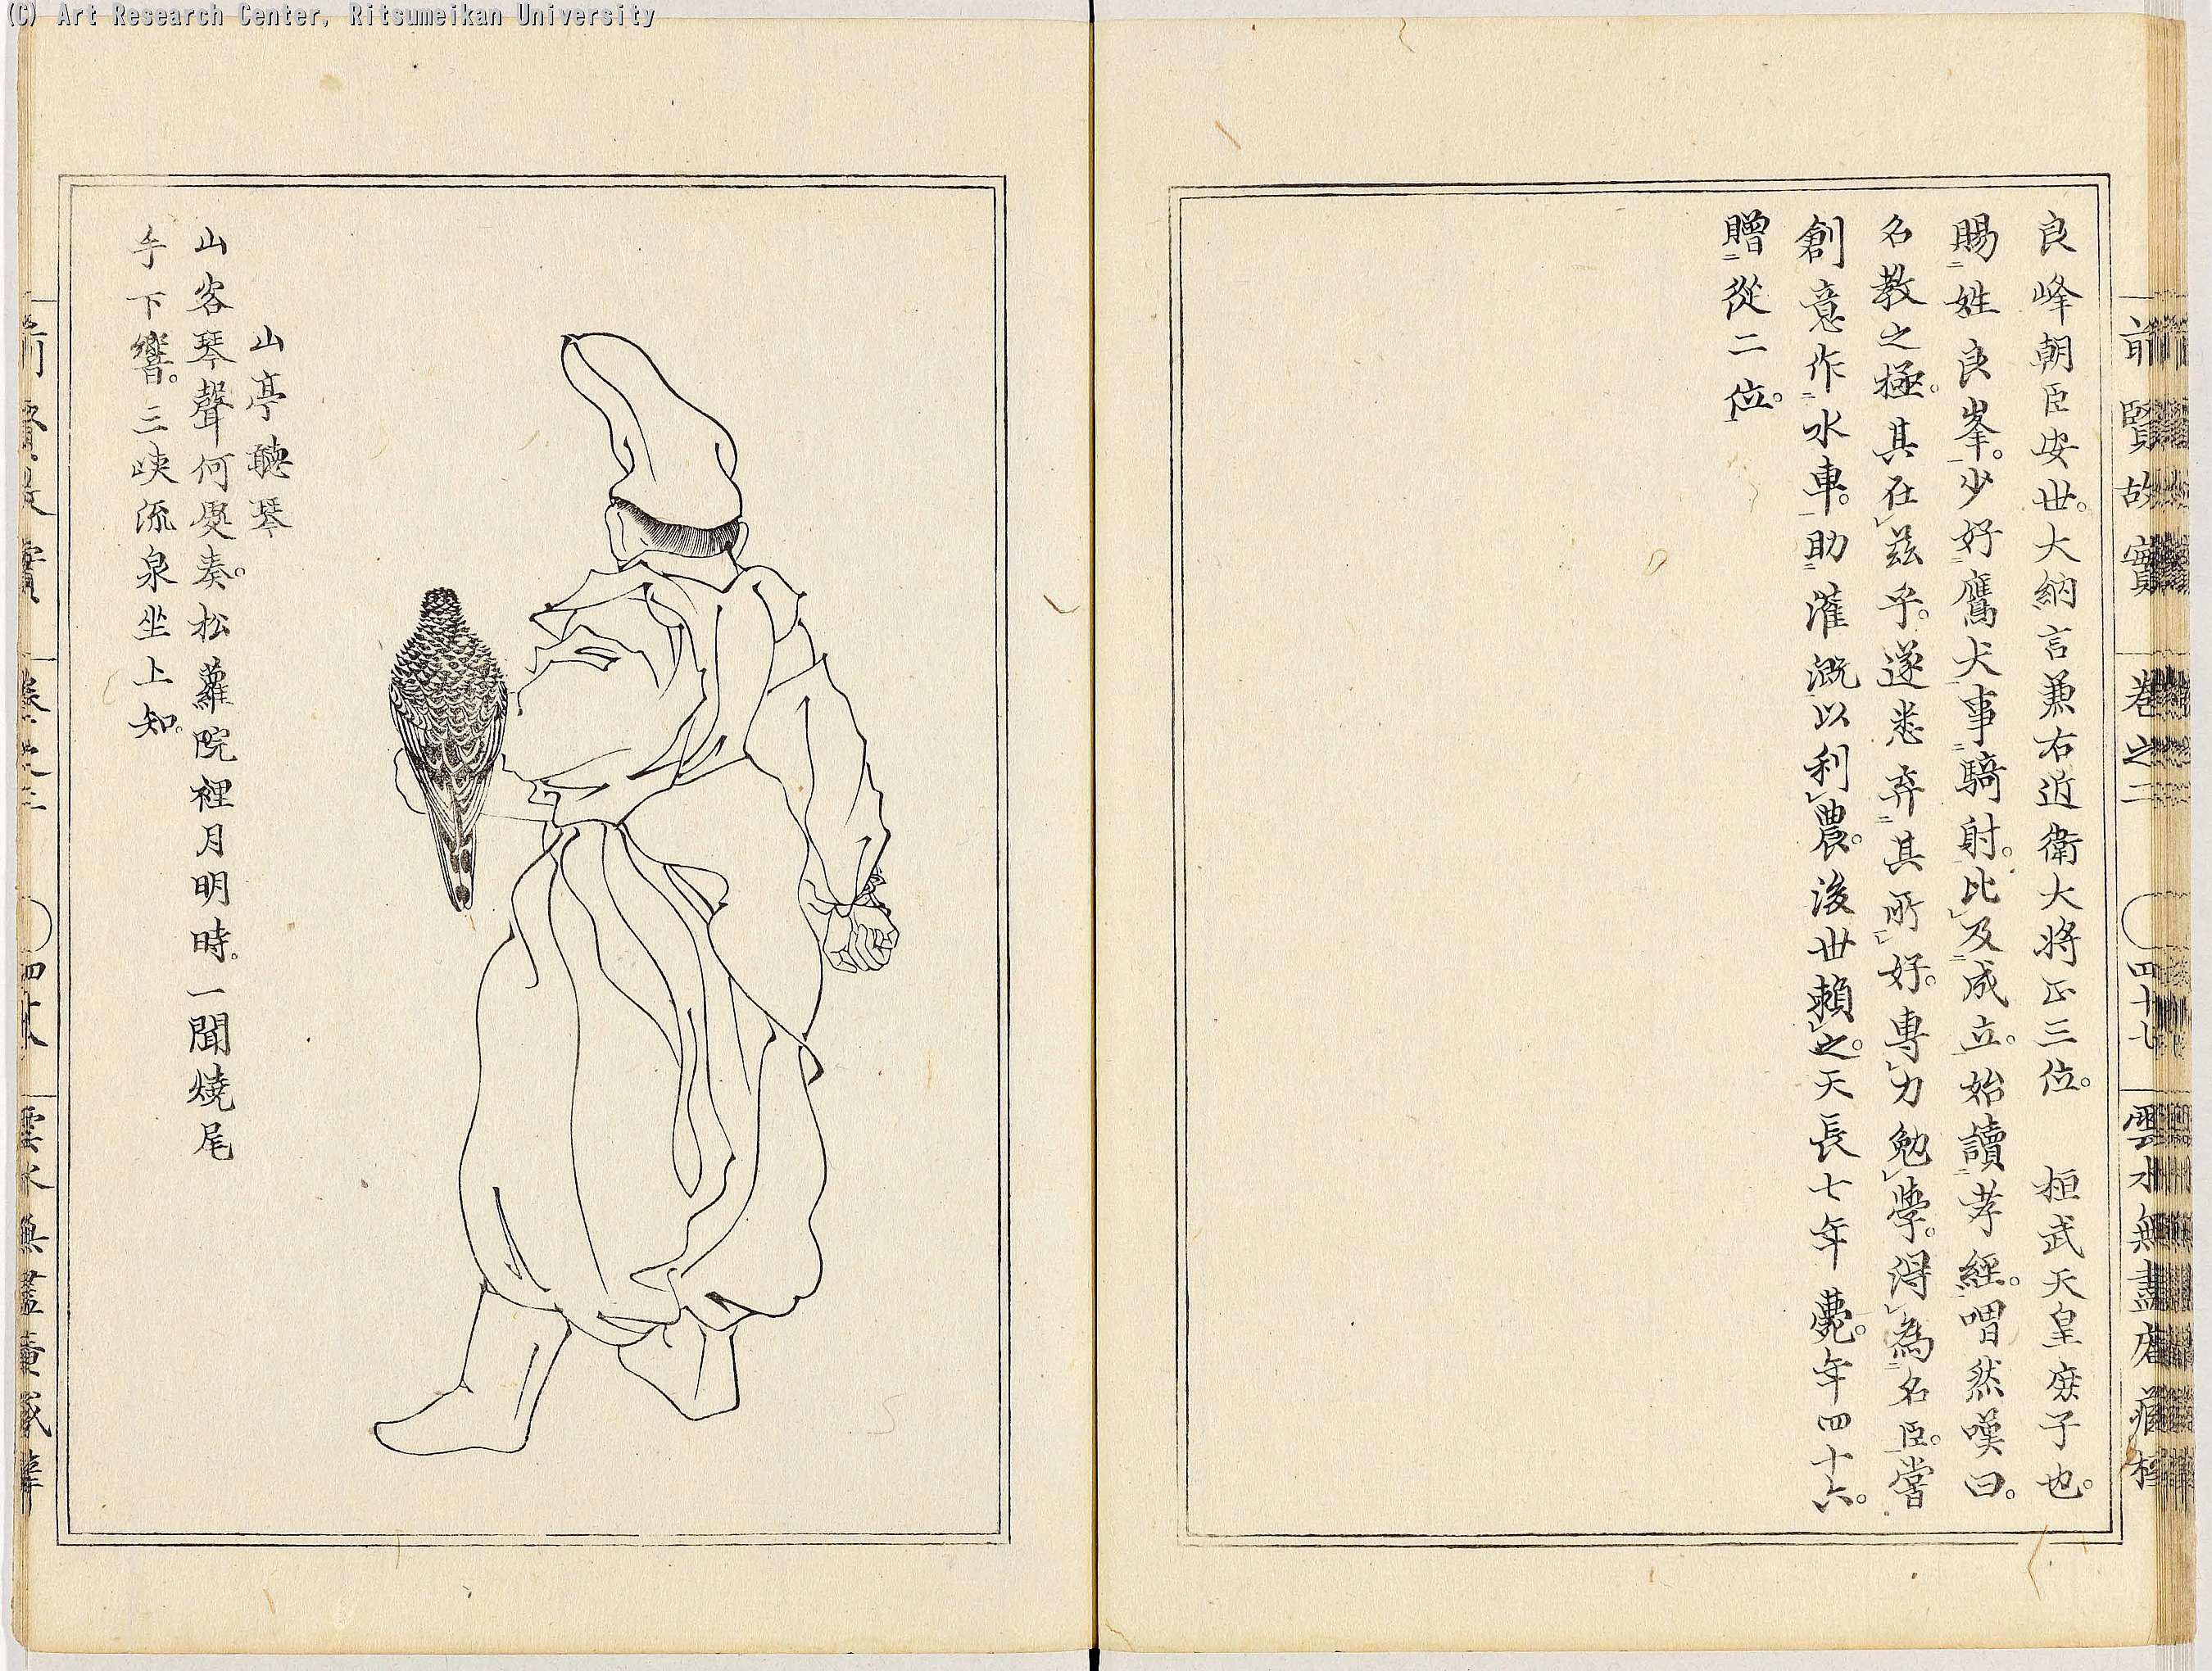 (C) Art Research Center, Ritsumeikan University
前賢故實 卷之二 四十七 雲水無盡庵藏
良峰朝臣安世。大納言兼右近衛大將正三位。 桓武天皇庶子也。
賜姓良峯。少好鷹犬事騎射。比及成立。始讀孝經。喟然嘆曰。
名教之極。其在茲乎。遂悉弃其所好。專力勉學。得為名臣。嘗
創意作水車。助灌漑以利農。後世賴之。天長七年薨。年四十六。
贈從二位。
山亭聽琴
山客琴聲何處奏。松蘿院裡月明時。一聞燒尾
手下響。三峽流泉坐上知。